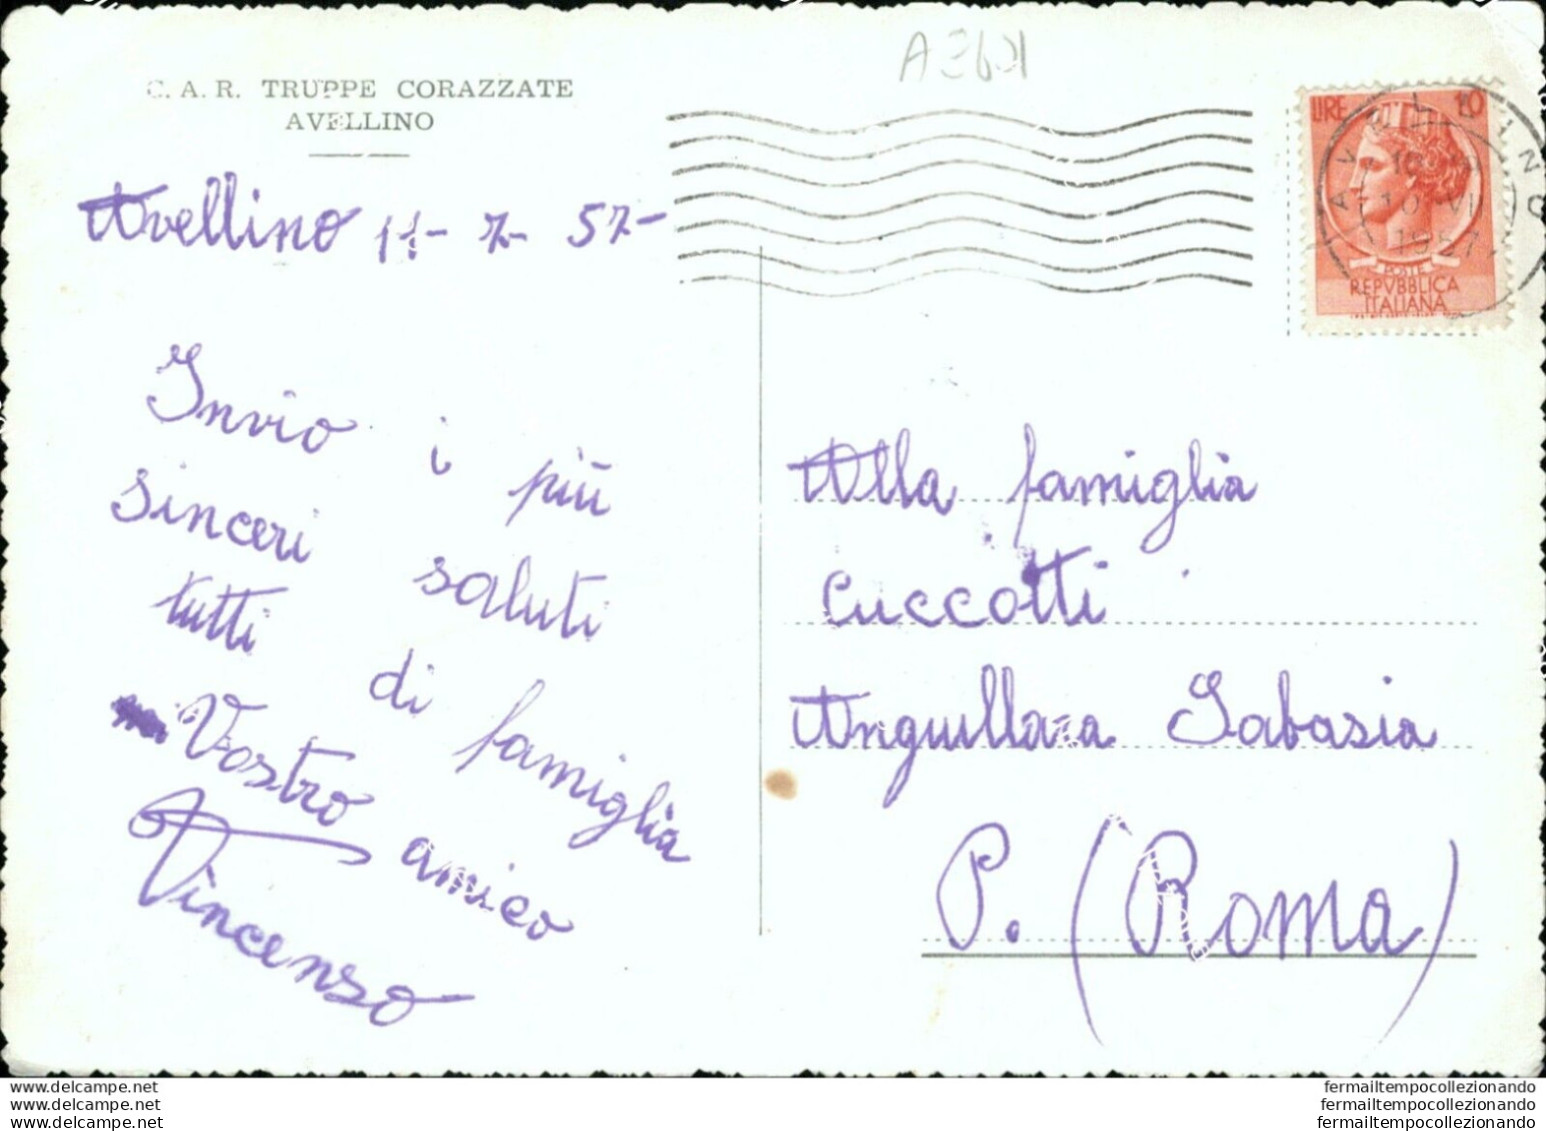 A2601
C. A. R. TRUPPE CORAZZATE
AVELLINO
Avellino 11- 7- 57-
Invio i più
sinceri saluti
tutti di famiglia
Vostro amico
Vincenso
LIRE 10
POSTE
REPVBBLICA
ITALIANA
AVELLINO
1957
Alla famiglia
Cuccotti
Anguillara Sabasia
P. (Roma)
www.delcampe.net
www.delcampe.net
www.delcampe.net
fermailtempocollezionando
fermailtempocollezionando
fermailtempocollezionando